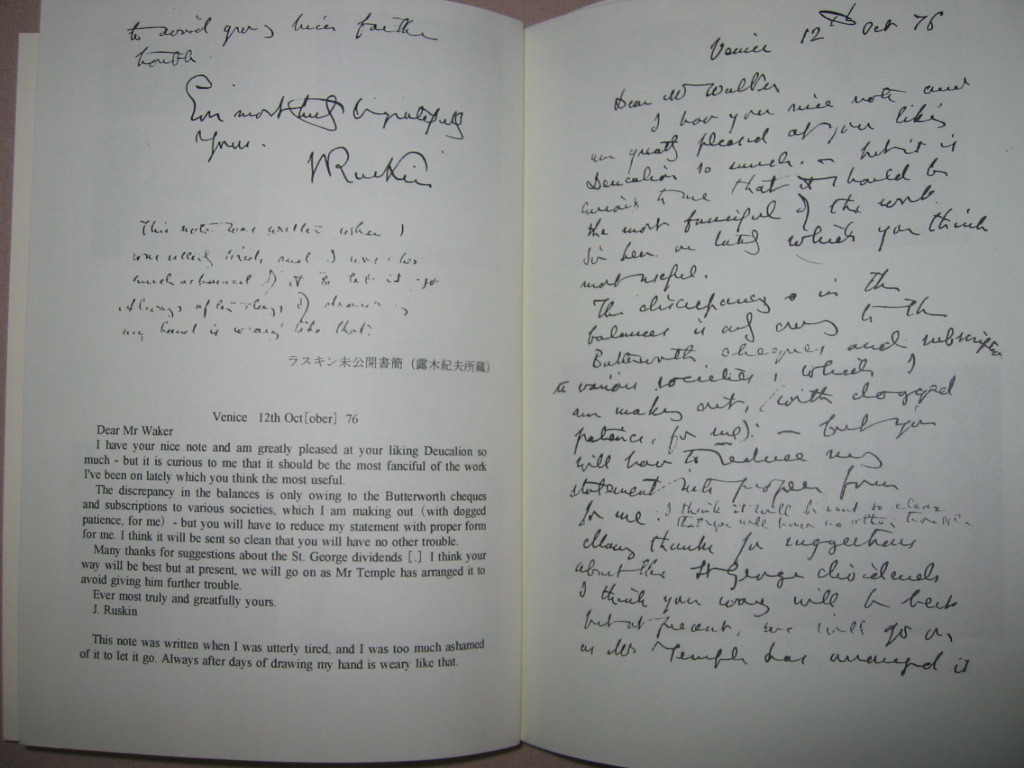 to avoid giving him further
trouble
Ever most truly & gratefully
Yours.
JRuskin
This note was written when I
was utterly tired, and I was too
much ashamed of it to let it go
Always after days of drawing
my hand is weary like that.
ラスキン未公開書簡（露木紀夫所蔵）
Venice 12th Oct[ober] 76
Dear Mr Waker
I have your nice note and am greatly pleased at your liking Deucalion so
much - but it is curious to me that it should be the most fanciful of the work
I've been on lately which you think the most useful.
The discrepancy in the balances is only owing to the Butterworth cheques
and subscriptions to various societies, which I am making out (with dogged
patience, for me) - but you will have to reduce my statement with proper form
for me. I think it will be sent so clean that you will have no other trouble.
Many thanks for suggestions about the St. George dividends [.] I think your
way will be best but at present, we will go on as Mr Temple has arranged it to
avoid giving him further trouble.
Ever most truly and greatfully yours.
J. Ruskin
This note was written when I was utterly tired, and I was too much ashamed
of it to let it go. Always after days of drawing my hand is weary like that.
Venice 12th Oct 76
Dear Mr Walker
I have your nice note and
am greatly pleased at your liking
Deucalion so much. - but it is
curious to me that it should be
the most fanciful of the work
I've been on lately which you think
most useful.
The discrepancy in the
balances is only owing to the
Butterworth cheques and subscriptions
to various societies, which I
am making out, (with dogged
patience, for me): - but you
will have to reduce my
statement into proper form
for me. I think it will be sent so clean
that you will have no other trouble
Many thanks for suggestions
about the St George dividends
I think your way will be best
but at present, we will go on
as Mr Temple has arranged it